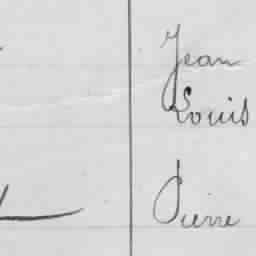 Jean
Louis
Pierre